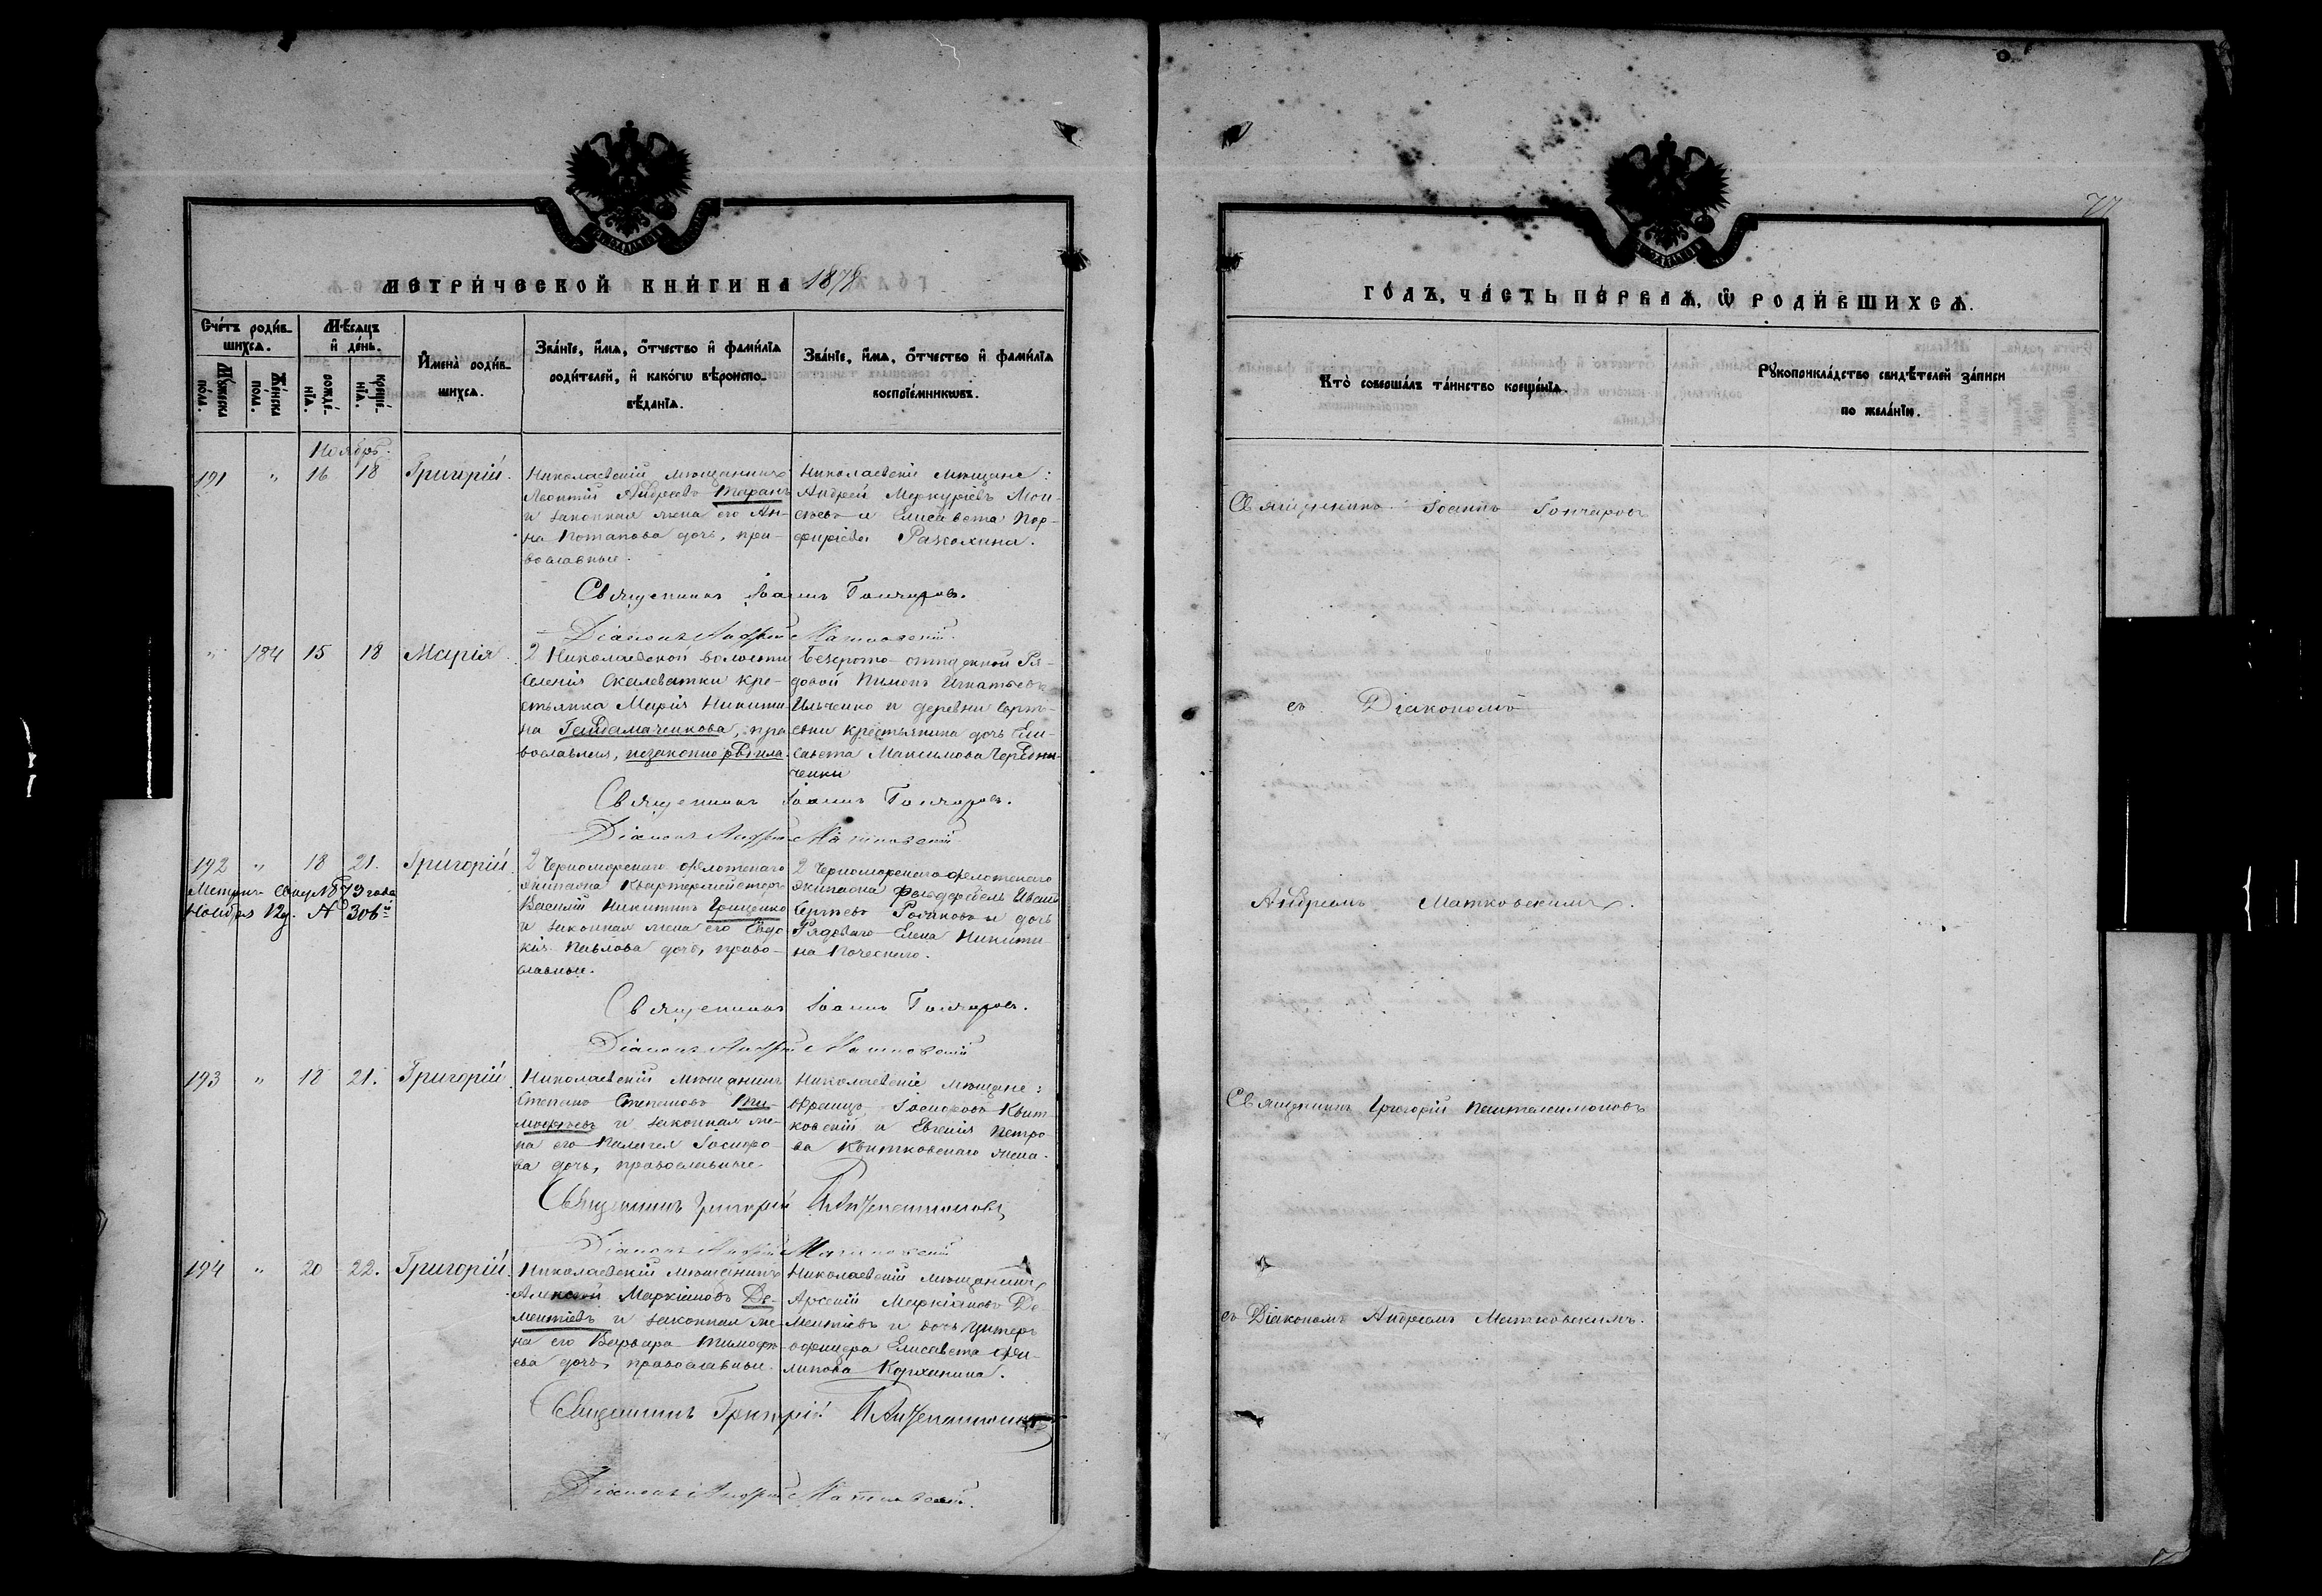 МЕТРИ́ЧЕСКОЙ КНИ́ГИ НА 1878
Сче́тъ роди́в-
шихсѧ.
Мѣ́сѧцъ
и҆ де́нь.
Мꙋ́жеска
по́ла.
Же́нска
по́ла.
рожде́-
нїѧ.
креще́-
нїѧ.
И҆мена̀ роди́в-
шихсѧ.
Зва́нїе, и҆́мѧ, ѻ҆́тчество и҆ фами́лїѧ
роди́телей, и҆ како́гѡ вѣроиспо-
вѣ́данїѧ.
Зва́нїе, и҆́мѧ, ѻ҆́тчество и҆ фами́лїѧ
воспрїе́мникѡвъ.
Ноябрь.
191 " 16 18 Григорій.
Николаевскій мѣщанинъ
Леонтій Андреевъ Таранъ
и законная жена его Ан-
на Потапова дочь, пра-
вославные.
Николаевскіе мѣщане:
Андрей Меркуріевъ Мои-
сѣевъ и Елисавета Пор-
фиріева
Священникъ Іоаннъ Гончаровъ.
Діаконъ Андрей Матковскій.
" 184 15 18 Марія.
Николаевской волости
селенія Скалеватки кре-
стьянка Марія Никити-
на Гайдамаченкова, пра
вославная, незаконно родила.
Безсрочно-отпускной Ря-
довой Пименъ Игнатьевъ
Ильченко и деревни Сергѣ-
евки крестьянина дочь Ели-
савета Максимова Чередни-
ченки
Священникъ Іоаннъ Гончаровъ.
Діаконъ Андрей Матковскій
192 " 18 21. Григорій.
Метрич. Свид. 1879 года
Ноября 12 д. № 306й
2 Черноморскаго флотскаго
экипажа Квартермейстеръ
Василій Никитинъ Грищенко
и законная жена его Евдо
кія Павлова дочь, право-
славные.
2 Черноморскаго флотскаго
экипажа Фельдфебель Иванъ
Сергѣевъ и дочь
Рядоваго Елена Никити-
на
Священникъ Іоаннъ Гончаровъ.
Діаконъ Андрей Матковскій
193 " 18 21. Григорій.
Николаевскій мѣщанинъ
Степанъ Степановъ Ти-
мофѣевъ и законная же-
на его Пелагея Іосифо-
ва дочь, православные.
Николаевскіе мѣщане:
Францъ Іосифовъ Квит-
ковскій и Евгенія Петро
ва Квитковскаго жена.
Священникъ Григорій Пантелеимоновъ
Діаконъ Андрей Матковскій
194 " 20 22. Григорій.
Николаевскій мѣщанинъ
Алексѣй Маркіановъ Де-
ментіевъ и законная же-
на его Варвара Тимофѣ-
ева дочь, православные.
Николаевскій мѣщанинъ
Арсеній Маркіановъ Де
ментіевъ и дочь Унтеръ
офицера Елисавета Фи-
липова
Священникъ Григорій Пантелеимоновъ
Діаконъ Андрей Матковскій.
77
ГО́ДЪ, ЧА́СТЬ ПЕ́РВАѦ, Ѽ РОДИ́ВШИХСѦ.
Кто̀ соверша́лъ та́инство креще́нїѧ.
Рꙋкоприкла́дство свидѣ́телей за́писи
по жела́нїю.
Священникъ Іоаннъ Гончаровъ
съ Діакономъ
Андреемъ Матковскимъ.
Священникъ Григорій Пантелеимоновъ
съ Діакономъ Андреемъ Матковскимъ.